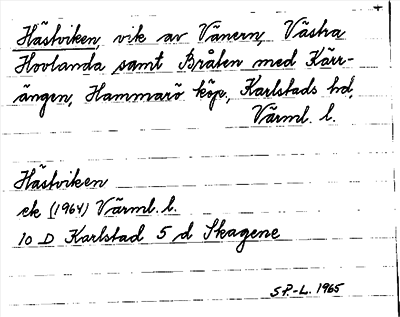 Hästviken, vik av Vänern, Västra
Hovlanda samt Bråten med Kärr-
ängen, Hammarö köp., Karlstads hd,
Värml. l.
Hästviken
ek (1964) Värml. l.
10 D Karlstad 5 d Skagene
S.P.-L. 1965